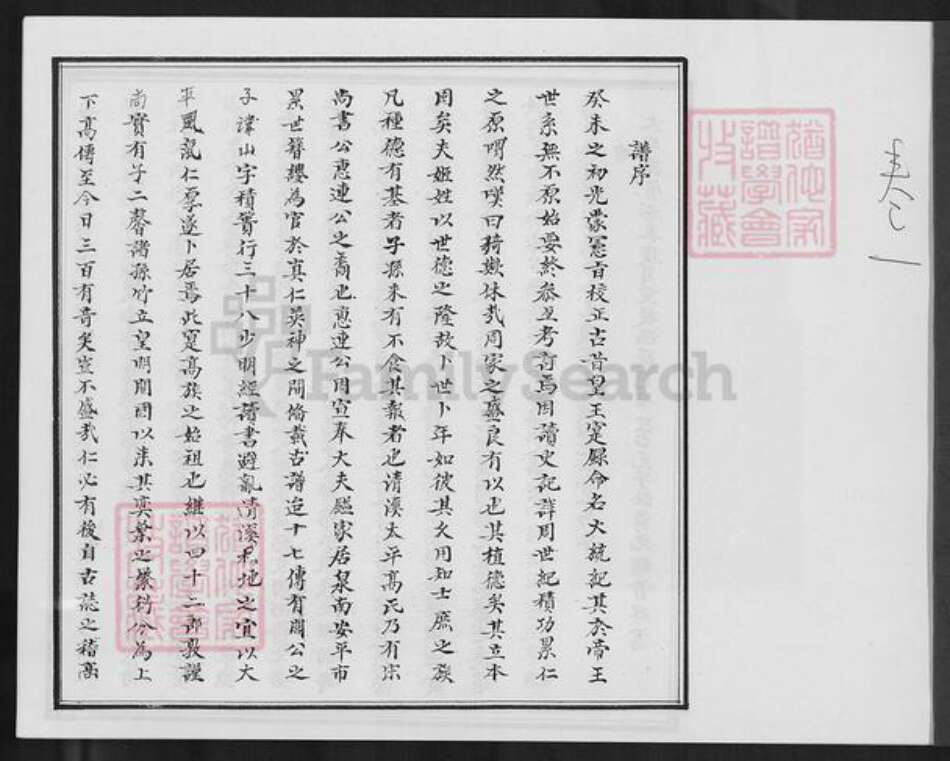 譜序
癸未之初光蒙憲旨校正古昔皇王寔錄命名大統記其於帝王
世系無不原始要終參互考訂焉因讀史記詳周世紀積功累仁
之原喟然嘆曰猗歟休哉周家之盛良有以也其植德矣其立本
固矣夫姬姓以世德之隆故卜世卜年如彼其久用知士庶之族
凡種德有基者子孫未有不食其報者也清溪太平高氏乃有宋
尚書公惠連公之裔也惠連公因宣奉大夫驅家居泉南安平市
累世簪纓為官於真仁英神之間備載古譜迨十七傳有開公之
子諱山字積實行三十八少明經讀書避亂清溪私地之宜以大
平風氣仁厚遂卜居焉此寔高族之始祖也繼以四十二郎敦謹
尚實有子二馨諸孫竹立皇明開國以來其奕葉之繁衍分為上
下高傳至今日三百有奇矣豈不盛哉仁必有後自古誌之稽高
猶他家
譜學會
收藏
猶他家
譜學會
收藏
FamilySearch